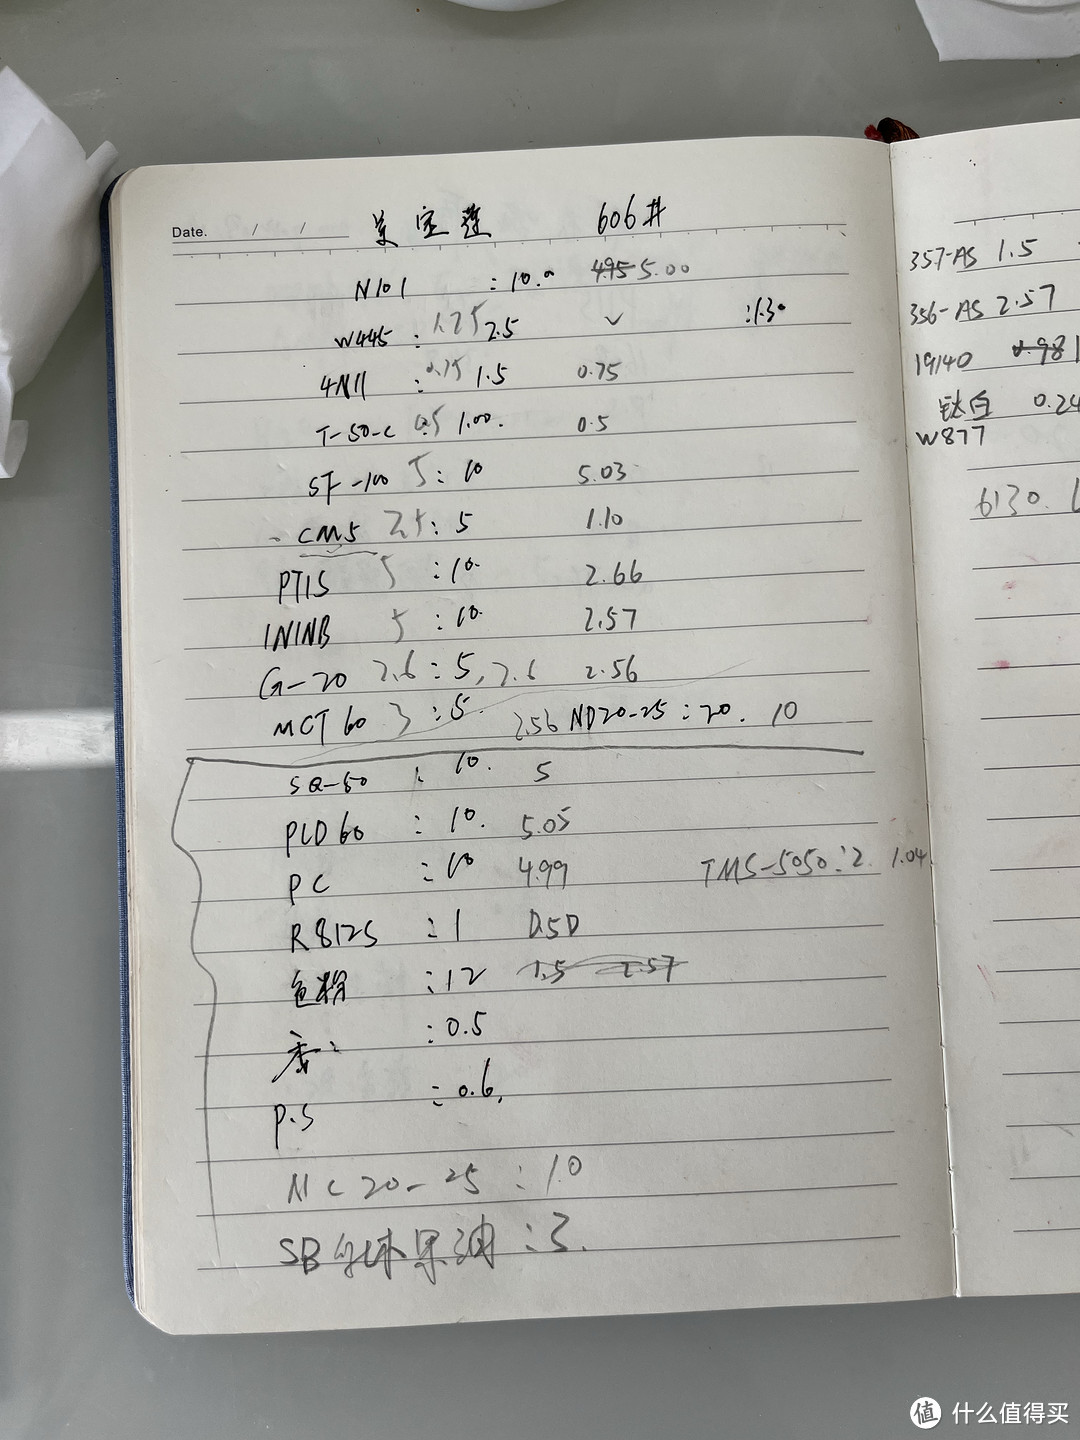 Date. / / 美宝莲 606#
N101 : 10.0 4.95 5.00
W445 : 1.25 2.5 ✓ : 1.30
4N11 : 0.75 1.5 0.75
T-50-C 0.5 1.00. 0.5
SF-100 5 : 10 5.03
CM5 2.5 : 5 1.10
PTIS 5 : 10. 2.66
ININB 5 : 10. 2.57
G-20 2.6 : 5, 2.6 2.56
MCT 60 3 : 5. 2.56 ND20-25 : 20. 10
SQ-50 : 10. 5
PLD60 : 10. 5.05
PC : 10 4.99 TMS-5050 : 2 1.04
R812S : 1 0.50
色粉 : 12 1.5 2.57
香 : 0.5
P.S : 0.6.
MC20-25 : 10
SB 果油 : 3.
357-AS 1.5
356-AS 2.57
19140 0.98 1
钛白 0.24
W877
6130.
值 什么值得买